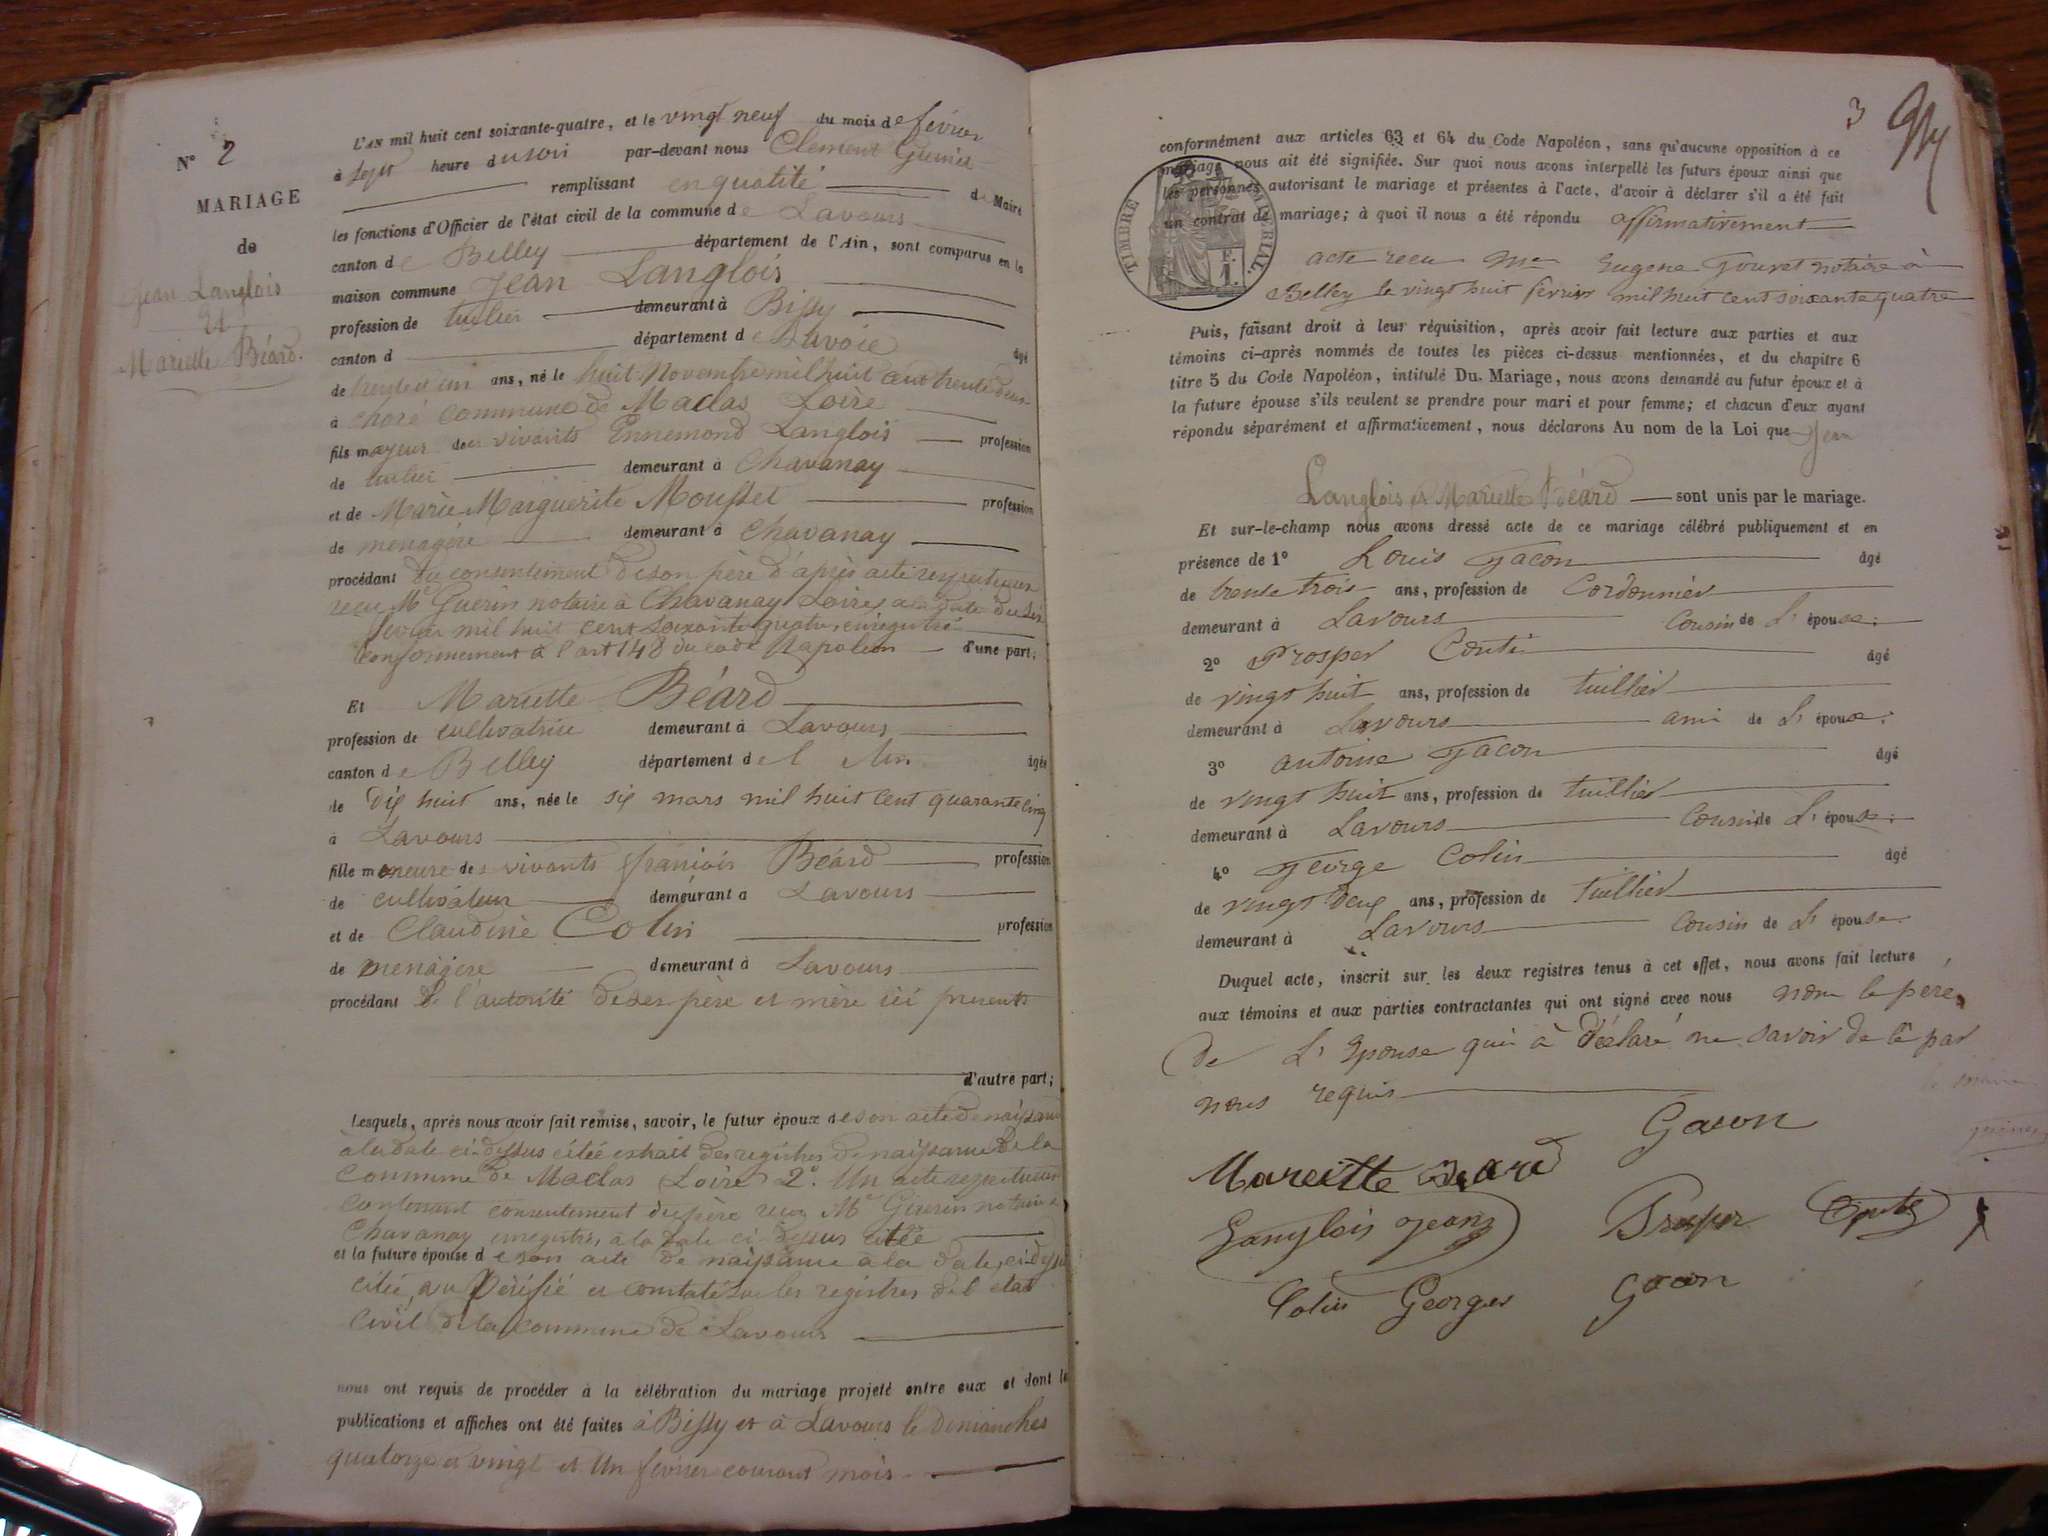 N° 2
MARIAGE
de
Jean Langlois
et
Mariette Béard.
L'AN mil huit cent soixante-quatre, et le vingt neuf du mois de février
à sept heure du soir par-devant nous Clement
remplissant en qualité de Maire
les fonctions d'Officier de l'état civil de la commune de Lavours
canton de Belley département de l'Ain, sont comparus en la
maison commune Jean Langlois
profession de tuilier demeurant à Bissy
canton d département de Savoie âgé
de trente et un ans, né le huit Novembre mil huit cent trente deux
à commune de Maclas Loire
fils mayeur des vivants Ennemond Langlois profession
de tuilier demeurant à Chavanay
et de Marie Marguerite Mousset profession
de menagère demeurant à Chavanay
procédant du consentement de son père d'après acte respectueux
recu Me Guerin notaire à Chavanay Loire, a la date du six
fevrier mil huit cent soixante quatre, enregistré
conformement à l'art 148 du code Napoleon d'une part;
Et Mariette Béard
profession de cultivatrice demeurant à Lavours
canton de Belley département de l'Ain âgée
de dix huit ans, née le six mars mil huit cent quarante cinq
à Lavours
fille mineure des vivants françois Béard profession
de cultivateur demeurant à Lavours
et de Claudine Colin profession
de menagere demeurant à Lavours
procédant de l'autorité de ses père et mère ici presents
d'autre part;
Lesquels, après nous avoir fait remise, savoir, le futur époux de son acte de naissance
à la date ci-dessus citée extrait des registres de naissance de la
Commune de Maclas (Loire) 2° Un acte respectueux
contenant consentement du père recu Me Guerin notaire à
Chavanay enregistré, a la date ci-dessus citée
et la future épouse de son acte de naissance a la date ci-dessus
citée, vu vérifié et constaté sur les registres de l'état
Civil de la commune de Lavours
nous ont requis de procéder à la célébration du mariage projeté entre eux et dont les
publications et affiches ont été faites à Bissy et à Lavours le Dimanches
quatorze et vingt et Un fevrier courant mois
3
conformément aux articles 63 et 64 du Code Napoléon, sans qu'aucune opposition à ce
mariage nous ait été signifiée. Sur quoi nous avons interpellé les futurs époux ainsi que
les personnes autorisant le mariage et présentes à l'acte, d'avoir à déclarer s'il a été fait
un contrat de mariage; à quoi il nous a été répondu affirmativement
TIMBRE IMPÉRIAL
F.
1.
acte recu Me Eugene notaire à
Belley le vingt huit fevrier mil huit cent soixante quatre
Puis, faisant droit à leur réquisition, après avoir fait lecture aux parties et aux
témoins ci-après nommés de toutes les pièces ci-dessus mentionnées, et du chapitre 6
titre 5 du Code Napoléon, intitulé Du Mariage, nous avons demandé au futur époux et à
la future épouse s'ils veulent se prendre pour mari et pour femme; et chacun d'eux ayant
répondu séparément et affirmativement, nous déclarons Au nom de la Loi que Jean
Langlois et Mariette Béard sont unis par le mariage.
Et sur-le-champ nous avons dressé acte de ce mariage célébré publiquement et en
présence de 1° Louis Gacon âgé
de trente trois ans, profession de Cordonnier
demeurant à Lavours Cousin de L'épouse;
2° Prosper Conti âgé
de vingt huit ans, profession de tuillier
demeurant à Lavours ami de L'épouse;
3° antoine Gacon âgé
de vingt huit ans, profession de tuillier
demeurant à Lavours Cousin de L'épouse;
4° George Colin âgé
de vingt deux ans, profession de tuillier
demeurant à Lavours Cousin de L'épouse
Duquel acte, inscrit sur les deux registres tenus à cet effet, nous avons fait lecture
aux témoins et aux parties contractantes qui ont signé avec nous non le père
de L'Epouse qui à déclaré ne savoir de ce par
nous requis
le maire
Gacon
Mareitte Beard
Langlois Jean
Prosper
Colin Georges
Gacon